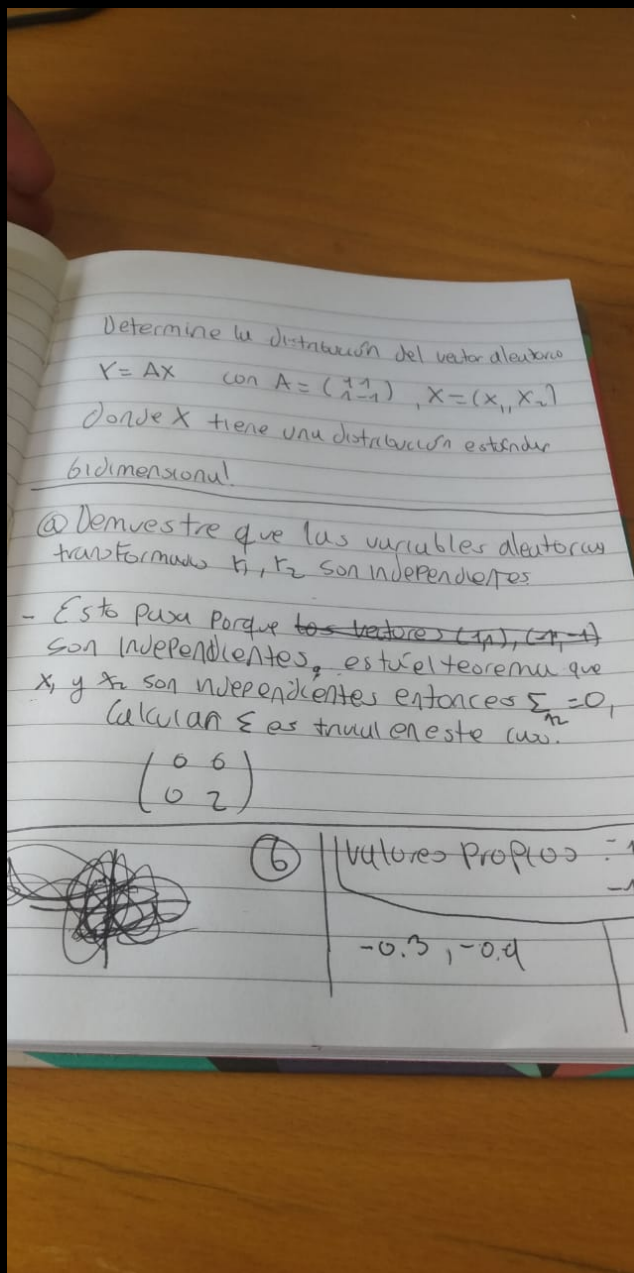 Determine la distribución del vector aleatorio
Y = AX con A = (1 1 1 -1), X = (X1, X2)
donde X tiene una distribución estándar
bidimensional.
ⓐ Demuestre que las variables aleatorias
transformadas Y1, Y2 son independientes
- Esto pasa porque los vectores (1,1), (1,-1)
son independientes, está el teorema que
X1 y X2 son independientes entonces Σ12 = 0,
Calcular Σ es trivial en este caso.
( 0 0
0 2 )
⑥ Valores Propios :
-0.3, -0.9